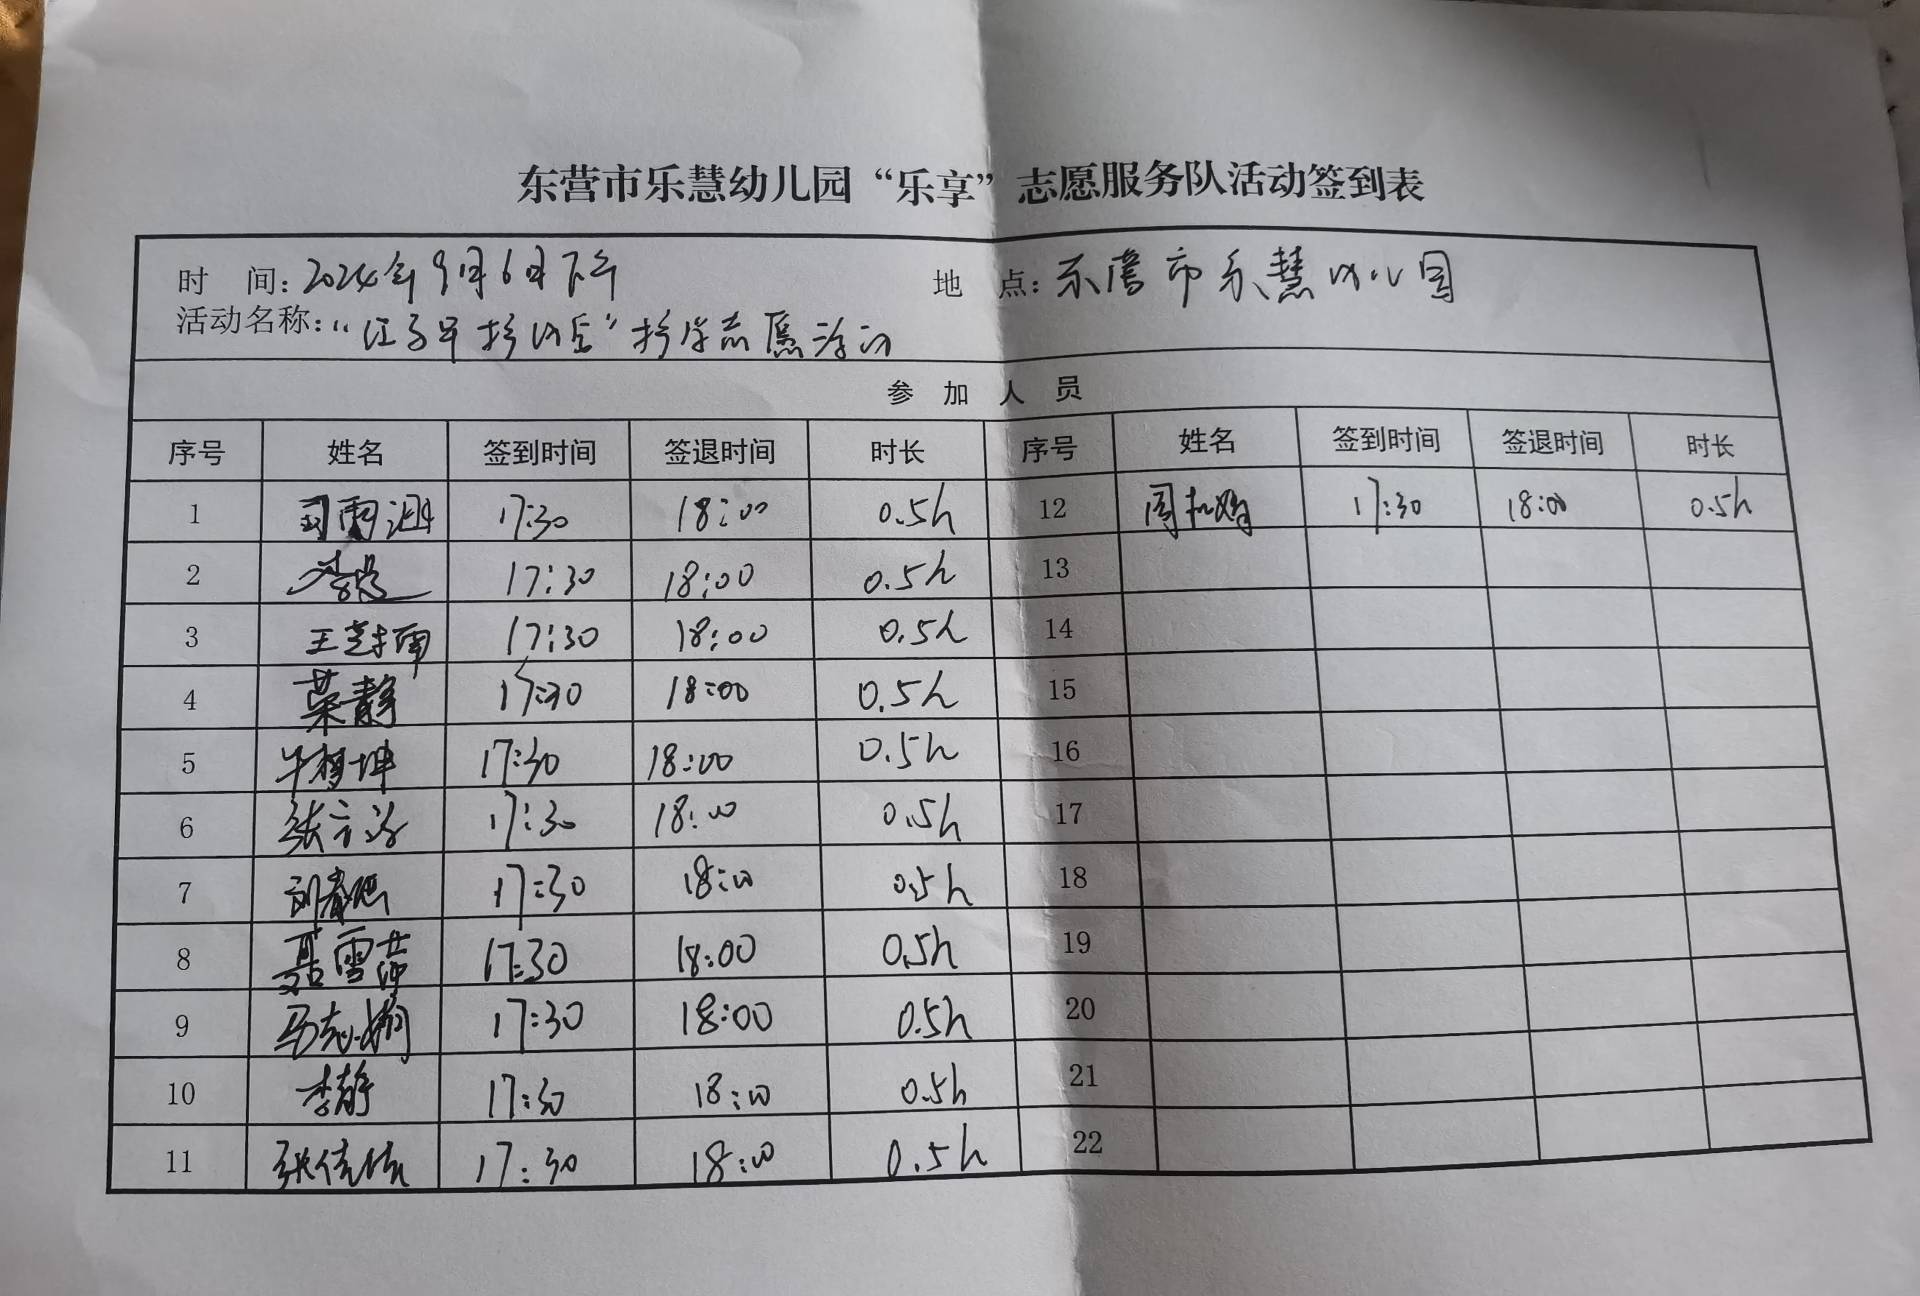 东营市乐慧幼儿园“乐享”志愿服务队活动签到表
时 间：2024年9月6日下午 地 点：东营市乐慧幼儿园
活动名称：志愿活动
参 加 人 员
序号 姓名 签到时间 签退时间 时长 序号 姓名 签到时间 签退时间 时长
1 17:30 18:00 0.5h 12 周 17:30 18:00 0.5h
2 17:30 18:00 0.5h 13
3 王 17:30 18:00 0.5h 14
4 荣静 17:30 18:00 0.5h 15
5 牛梦坤 17:30 18:00 0.5h 16
6 张 17:30 18:00 0.5h 17
7 刘 17:30 18:00 0.5h 18
8 聂雪莎 17:30 18:00 0.5h 19
9 马志娟 17:30 18:00 0.5h 20
10 李静 17:30 18:00 0.5h 21
11 张倩倩 17:30 18:00 0.5h 22